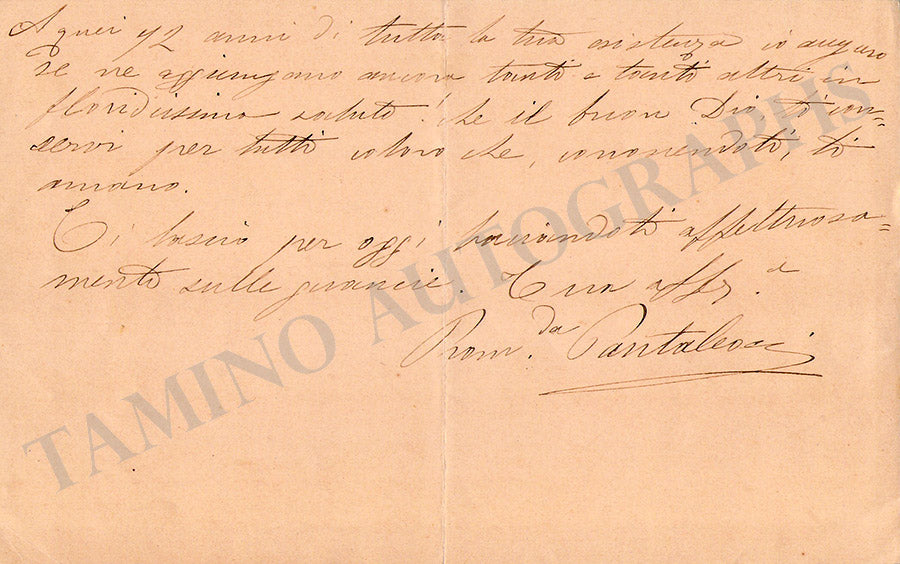 A quei 72 anni di tutta la tua esistenza io auguro
se ne aggiungano ancora tanti e tanti altri in
floridissima salute! che il buon Dio, ti con=
servi per tutti coloro che, conoscendoti, ti
amano.
Ti lascio per oggi baciandoti affettuosa=
mente sulle guancie. Tua affz.a
Rom.da Pantaleoni
TAMINO AUTOGRAPHS